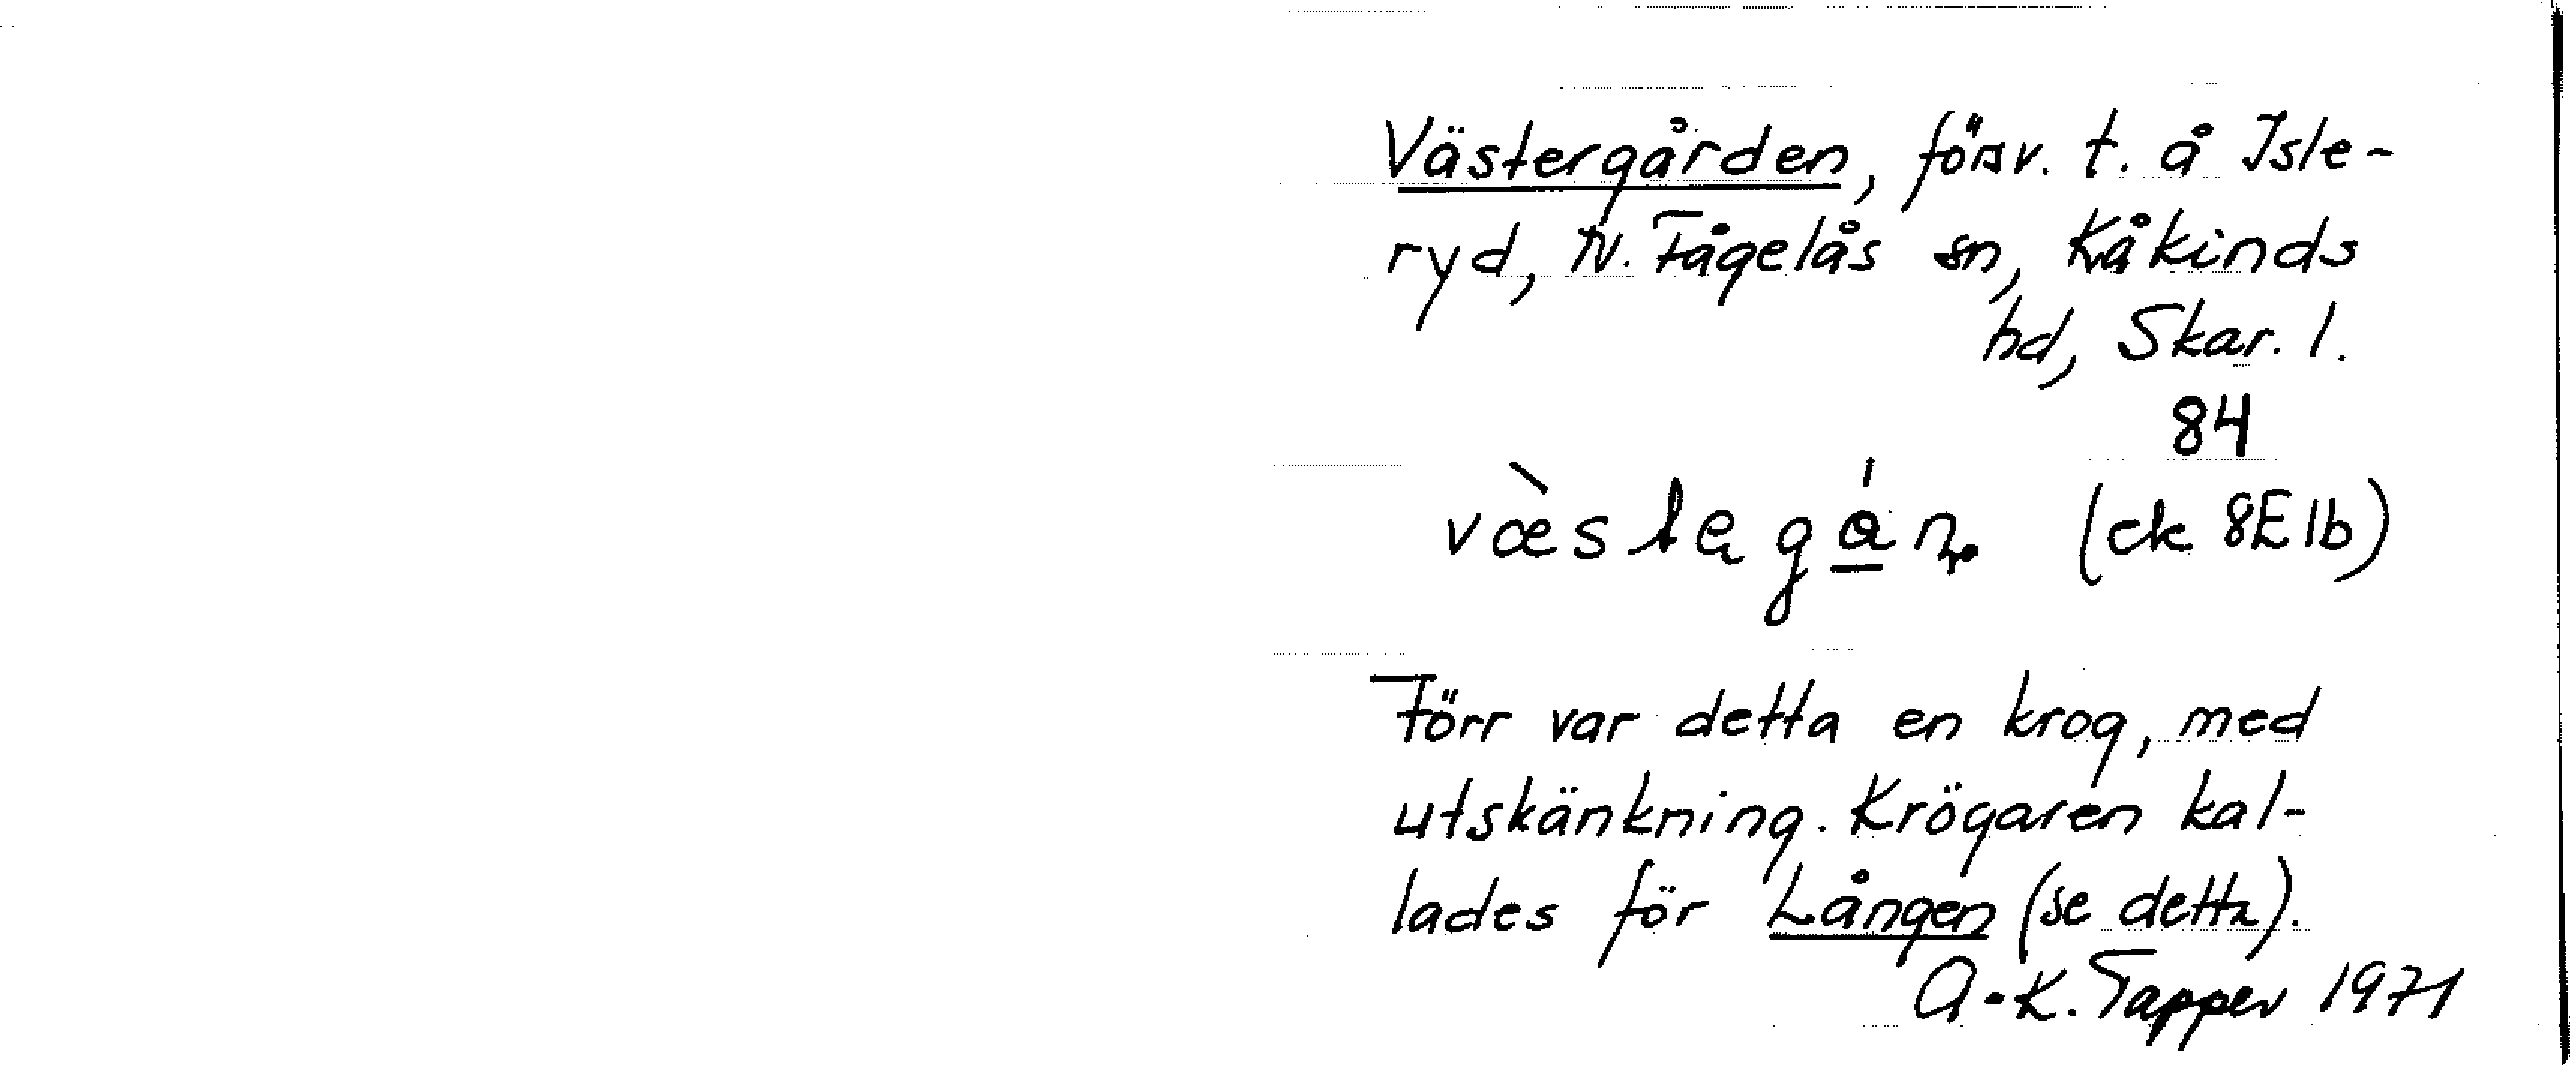 Västergården, försv. t. å Isle-
ryd, N. Fågelås sn, Kåkinds
hd, Skar. l.
84
(ek 8E1b)
Förr var detta en krog, med
utskänkning. Krögaren kal-
lades för Lången (se detta).
A-K. Tapper 1971